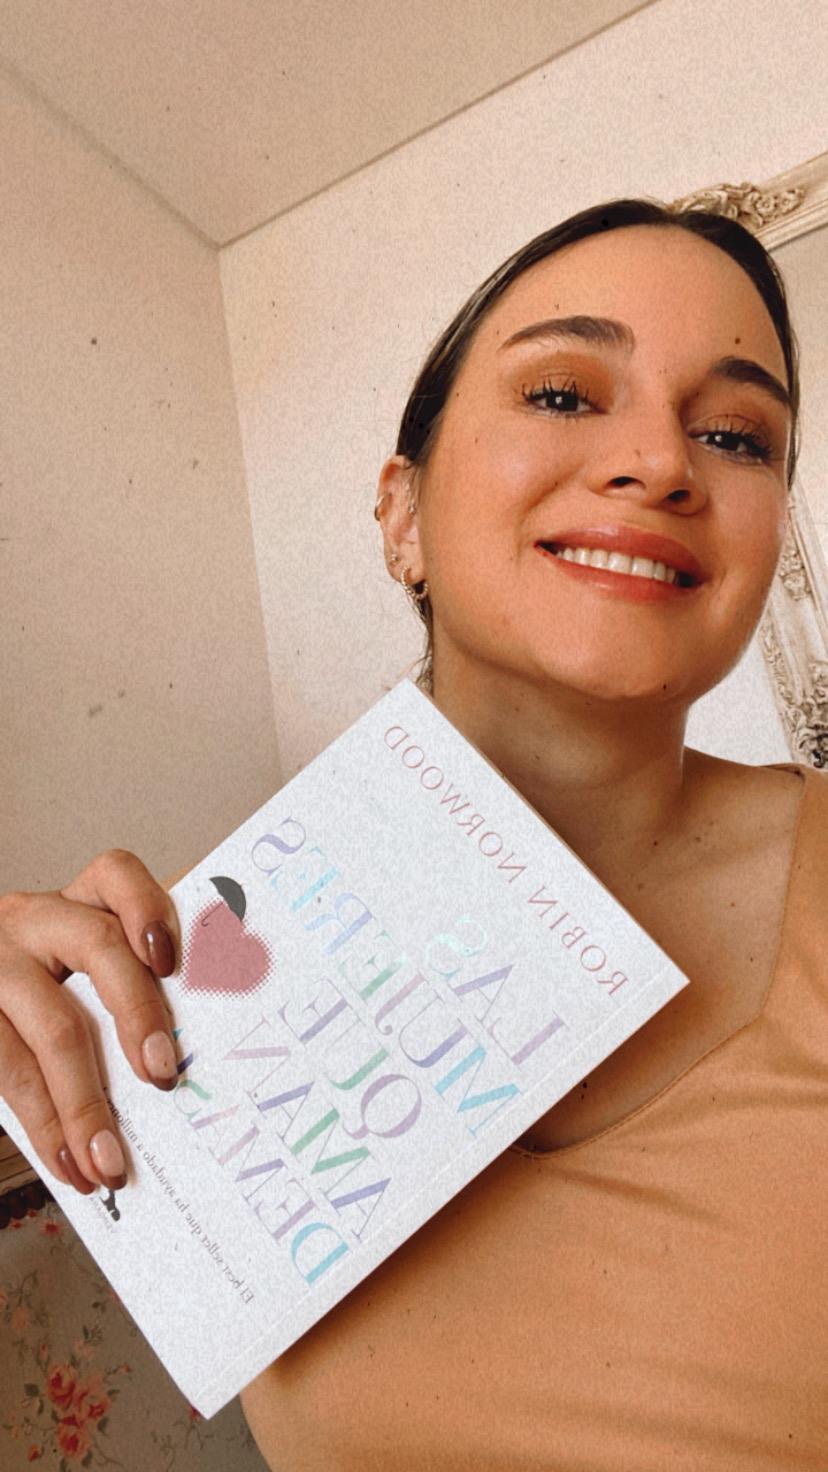 ROBIN NORWOOD
LAS
MUJERES
QUE
AMAN
DEMASIA
El best seller que ha ayudado a millones